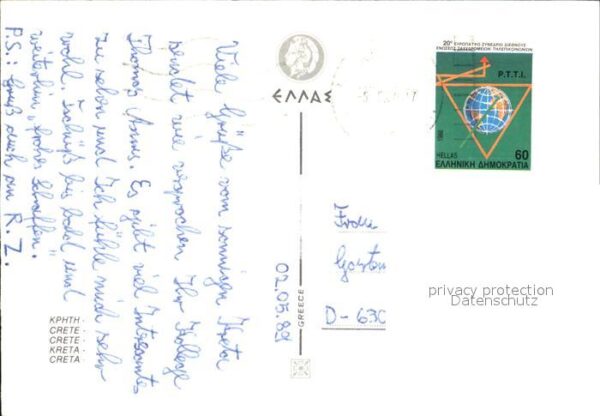 Viele Grüße vom sonnigen Kreta
sendet wie versprochen Ihr Kollege
Thomas. Es gibt viel Interessantes
zu sehen und ich fühle mich sehr
wohl. Tschüß bis bald und
weiterhin „frohes Schaffen".
P.S.: Gruß auch an R. Z.
02.05.89
ΕΛΛΑΣ
GREECE
20º ΕΥΡΩΠΑΪΚΟ ΣΥΝΕΔΡΙΟ ΔΙΕΘΝΟΥΣ
ΕΝΩΣΕΩΣ ΤΑΧΥΔΡΟΜΕΙΩΝ ΤΗΛΕΠΙΚΟΙΝΩΝΙΩΝ
P.T.T.I.
1988
HELLAS
60
ΕΛΛΗΝΙΚΗ ΔΗΜΟΚΡΑΤΙΑ
Frau
D-630
privacy protection
Datenschutz
ΚΡΗΤΗ ·
CRETE ·
CRETE ·
KRETA ·
CRETA ·